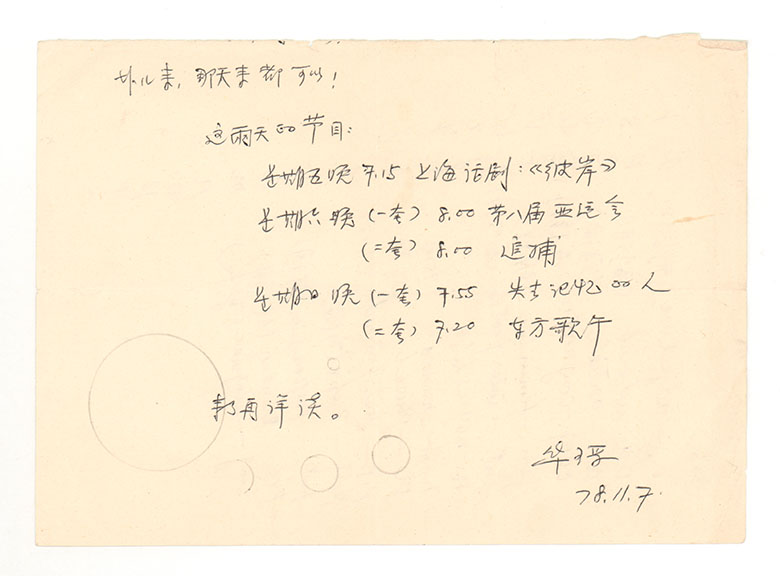 来，那天来都可以！
这两天的节目：
星期五晚 7.15 上海话剧：《彼岸》
星期六晚 (一套) 8.00 第八届亚运会
(二套) 8.00 追捕
星期日晚 (一套) 7.55 失去记忆的人
(二套) 7.20 东方歌午
再详谈。
华
78.11.7.